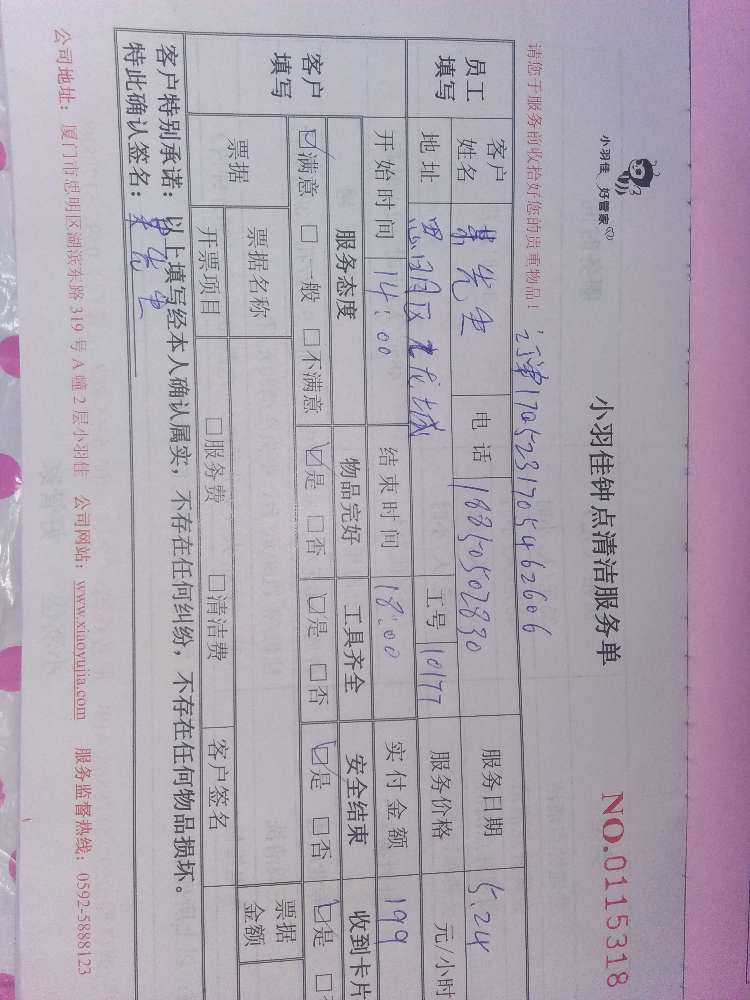 小羽佳 好管家
小羽佳钟点清洁服务单
NO.0115318
请您于服务前收拾好您的贵重物品！
1705231705462606
员工填写
客户姓名
先生
电话
18850502830
服务日期
5.24
地址
思明区 龙城
工号
10177
服务价格
元/小时
开始时间
14:00
结束时间
18:00
实付金额
199
客户填写
服务态度
物品完好
工具齐全
安全结束
收到卡片
☑满意 □一般 □不满意
☑是 □否
☑是 □否
☑是 □否
☑是
票据
票据名称
票据金额
开票项目
□服务费
□清洁费
客户签名
客户特别承诺：以上填写经本人确认属实，不存在任何纠纷，不存在任何物品损坏。
特此确认签名：
公司地址：厦门市思明区湖滨东路 319 号 A 幢 2 层小羽佳 公司网站：www.xiaoyujia.com 服务监督热线：0592-5888123